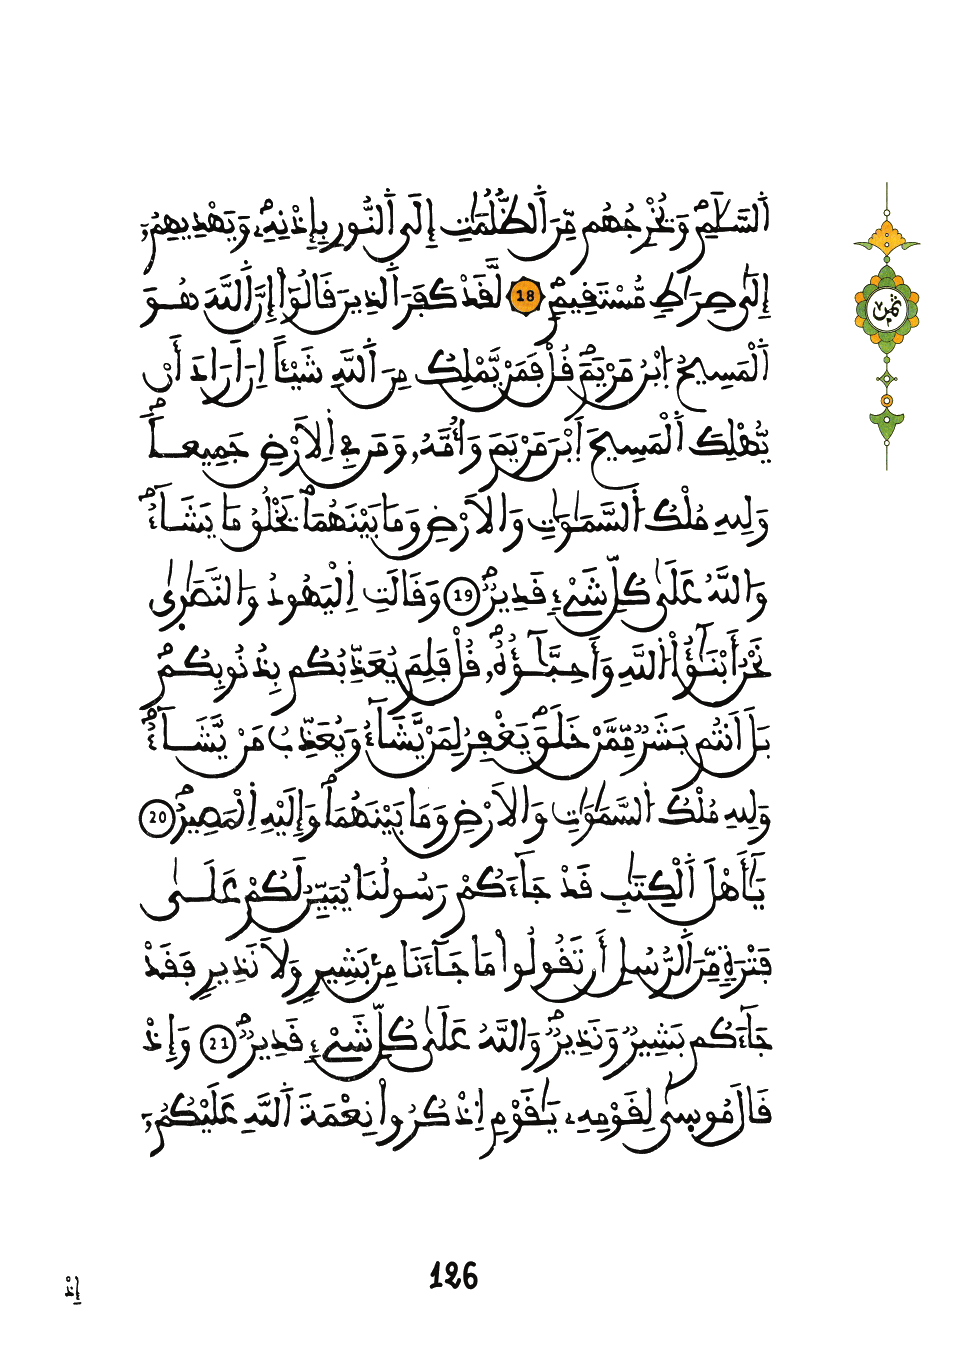 اَ۬لسَّلَٰمِ وَيُخْرِجُهُم مِّنَ اَ۬لظُّلُمَٰتِ إِلَي اَ۬لنُّورِ بِإِذْنِهِۦ وَيَهْدِيهِمُۥٓ
إِلَيٰ صِرَٰطٖ مُّسْتَقِيمٖۖ 18 لَّقَدْ كَفَرَ اَ۬لذِينَ قَالُوٓاْ إِنَّ اَ۬للَّهَ هُوَ
ثمن
اَ۬لْمَسِيحُ اُ۪بْنُ مَرْيَمَۖ قُلْ فَمَنْ يَّمْلِكُ مِنَ اَ۬للَّهِ شَيْـٔاً اِنَ اَرَادَ أَنْ
يُّهْلِكَ اَ۬لْمَسِيحَ اَ۪بْنَ مَرْيَمَ وَأُمَّهُۥ وَمَن فِے اِ۬لَارْضِ جَمِيعاٗۖ
وَلِلهِ مُلْكُ اُ۬لسَّمَٰوَٰتِ وَالَارْضِ وَمَا بَيْنَهُمَاۖ يَخْلُقُ مَا يَشَآءُۖ
وَاللَّهُ عَلَيٰ كُلِّ شَےْءٖ قَدِيرٞۖ 19 وَقَالَتِ اِ۬لْيَهُودُ وَالنَّصَٰرَىٰ
نَحْنُ أَبْنَٰٓؤُاْ اُ۬للَّهِ وَأَحِبَّٰٓؤُهُۥۖ قُلْ فَلِمَ يُعَذِّبُكُم بِذُنُوبِكُمۖ
بَلَ اَنتُم بَشَرٞ مِّمَّنْ خَلَقَۖ يَغْفِرُ لِمَنْ يَّشَآءُ وَيُعَذِّبُ مَنْ يَّشَآءُۖ
وَلِلهِ مُلْكُ اُ۬لسَّمَٰوَٰتِ وَالَارْضِ وَمَا بَيْنَهُمَاۖ وَإِلَيْهِ اِ۬لْمَصِيرُۖ 20
يَٰٓأَهْلَ اَ۬لْكِتَٰبِ قَدْ جَآءَكُمْ رَسُولُنَا يُبَيِّنُ لَكُمْ عَلَيٰ
فَتْرَةٖ مِّنَ اَ۬لرُّسُلِ أَن تَقُولُواْ مَا جَآءَنَا مِنۢ بَشِيرٖ وَلَا نَذِيرٖ فَقَدْ
جَآءَكُم بَشِيرٞ وَنَذِيرٞۖ وَاللَّهُ عَلَيٰ كُلِّ شَےْءٖ قَدِيرٞۖ 21 وَإِذْ
قَالَ مُوسَىٰ لِقَوْمِهِۦ يَٰقَوْمِ اِ۟ذْكُرُواْ نِعْمَةَ اَ۬للَّهِ عَلَيْكُمُۥٓ
126
إِذْ